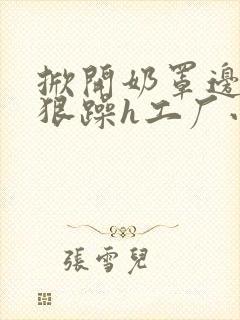 掀開奶罩邊
狠躁h工厂
張雪兒